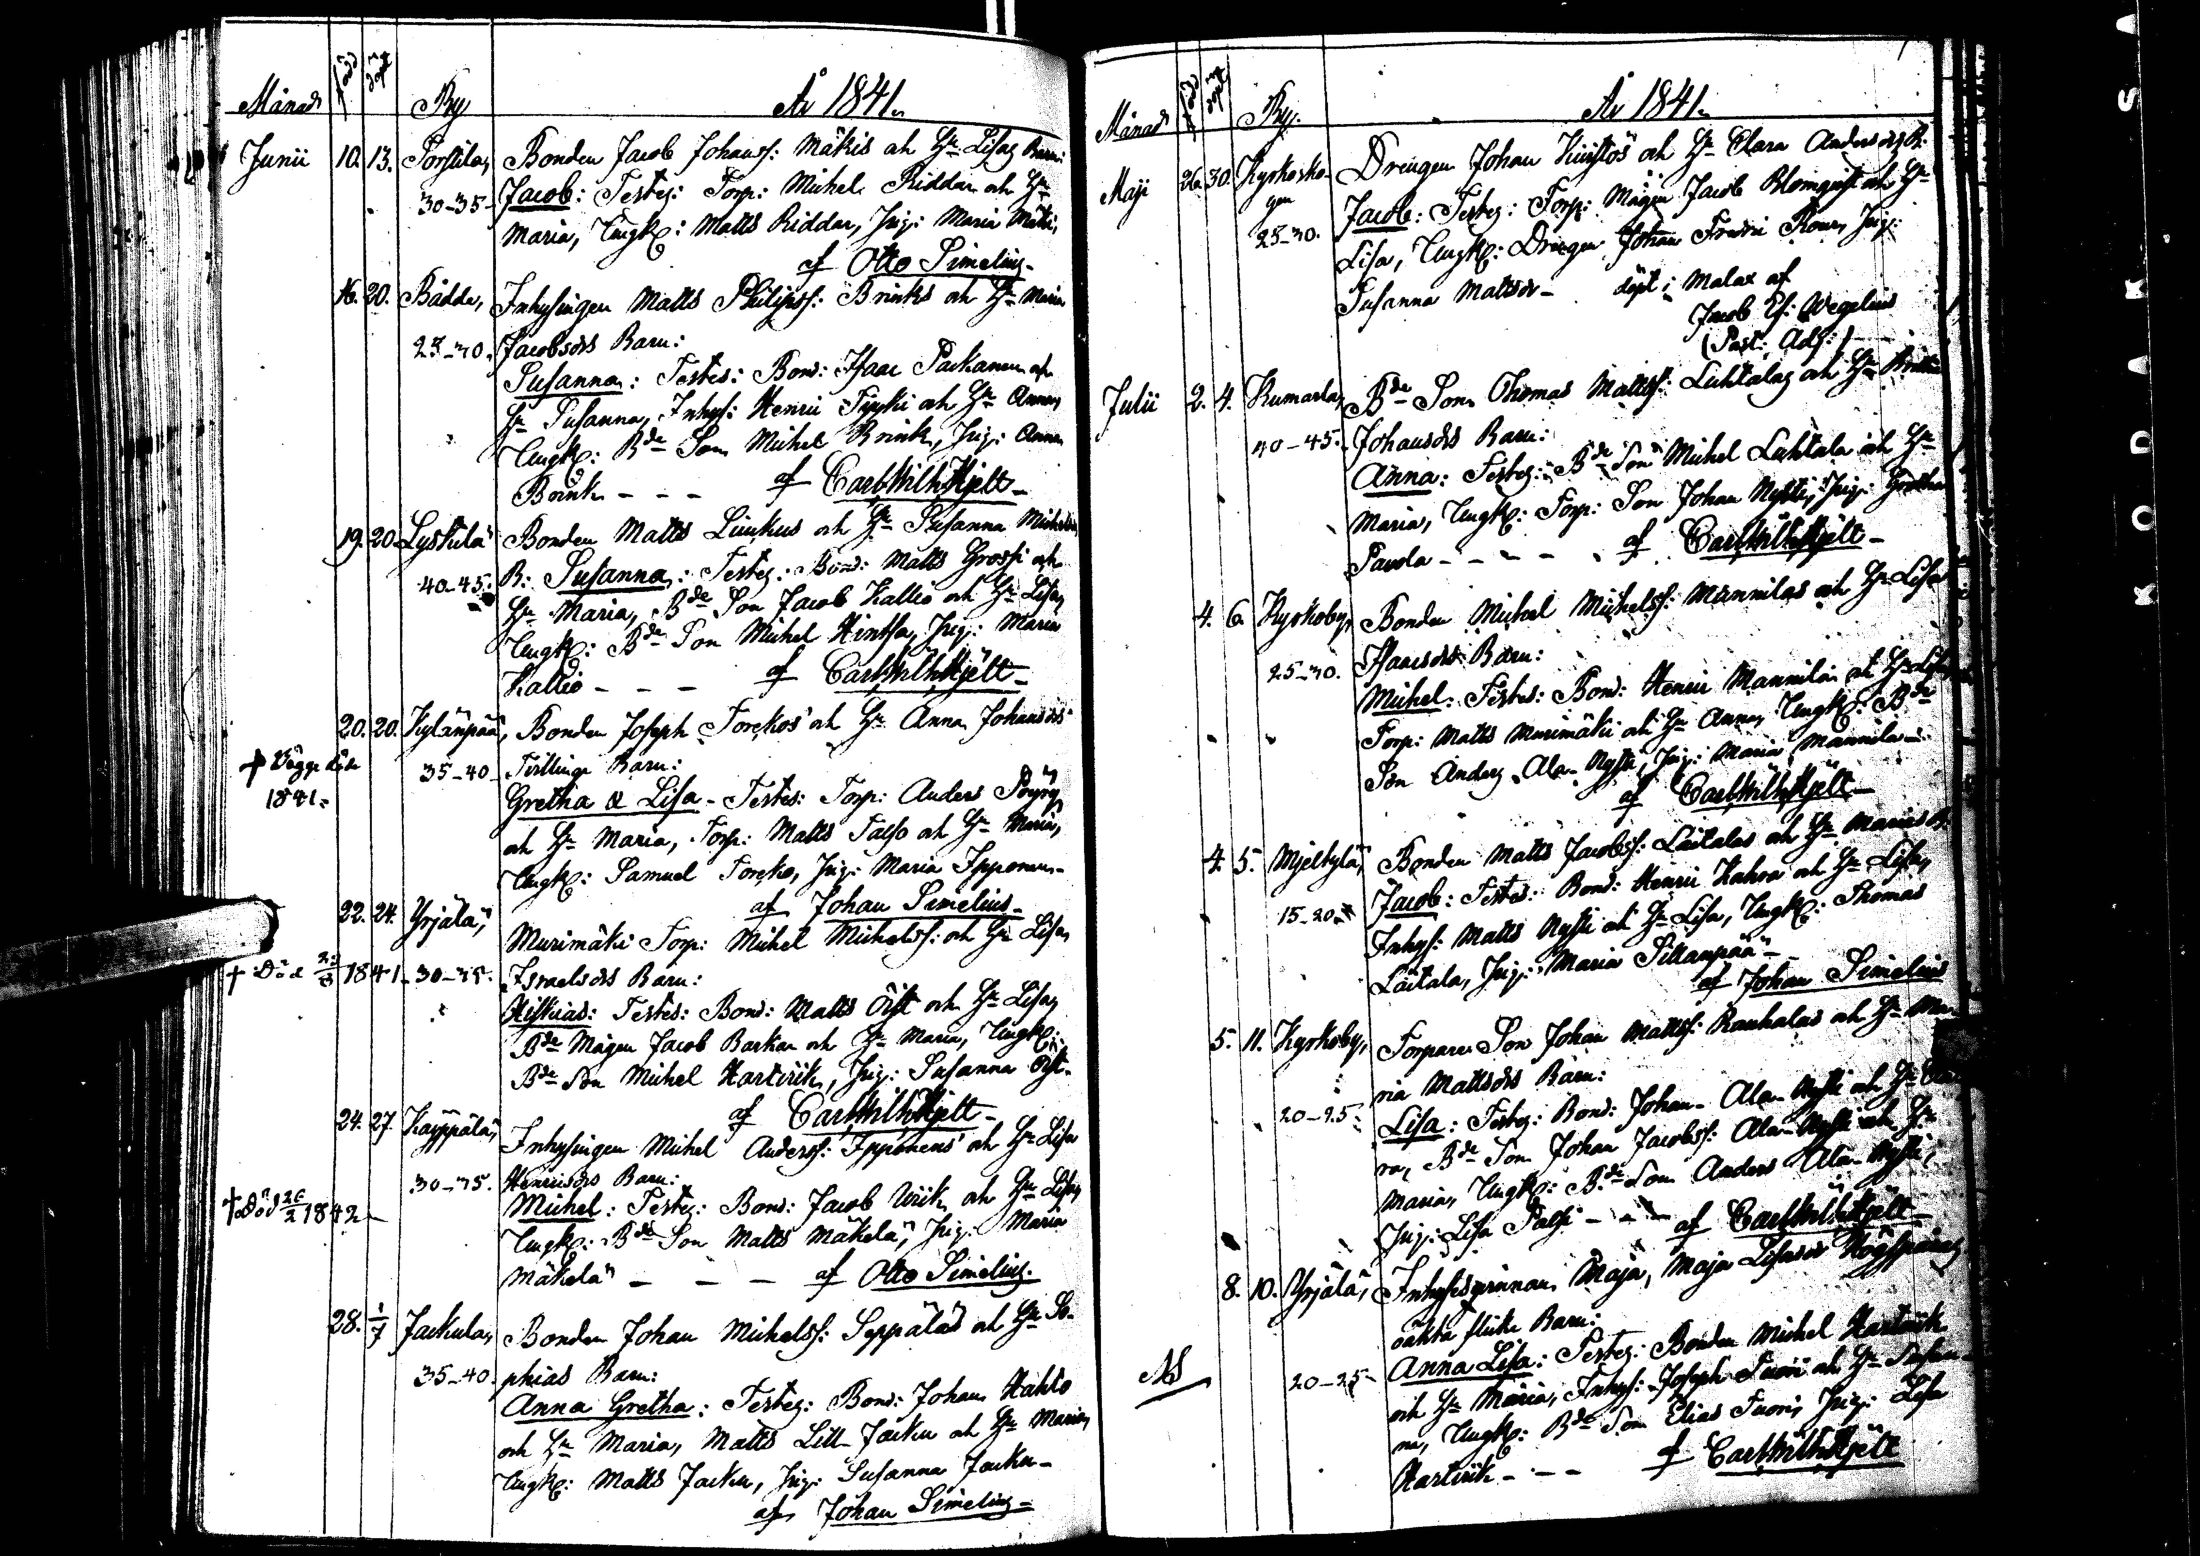 Månad född döpt By År 1841.
Junii 10. 13. Torstila, Bonden Jacob Johanss: Mäkis och Hu Lisas Barn:
30-35- Jacob: Testes: Torp: Michel Riddar och Hu
Maria, Ungk: Matts Riddar, Pig: Maria Mäki,
af Otto Simelius-
16. 20. Bådda, Inhysingen Matts Philipss: Brinks och Hu Maria
25-30. Jacobsdrs Barn:
Susanna: Testes: Bond: Isaac Parkanen och
Hu Susanna, Inhys: Henric Tyyki och Hu Anna,
Ungk: Bde Son Michel Brink, Pig: Anna
Brink - - - af Carl Wilh Hjelt-
19. 20. Lyskilä Bonden Matts Liukus och Hu Susanna Michelsdrs
40-45. B: Susanna: Testes: Bond: Matts Grossi och
Hu Maria, Bde Son Jacob Kallio och Hu Lisa,
Ungk: Bde Son Michel Hintsa, Pig: Maria
Kallio - - - af Carl Wilh Hjelt-
20. 20. Kylänpää, Bonden Joseph Torckos och Hu Anna Johansdrs
† Bägge döde 35-40- Tvillinge Barn:
1841. Gretha & Lisa - Testes: Torp: Anders Pöyry
och Hu Maria, Torp: Matts Talso och Hu Maria,
Ungk: Samuel Torcko, Pig: Maria Ipponen-
af Johan Simelius-
22. 24. Yrjälä, Murimäki Torp: Michel Michelss: och Hu Lisa
† Död 1841. 30-35. Israelsdrs Barn:
Hiskias: Testes: Bond: Matts Öist och Hu Lisa,
Bde Mågen Jacob Barkar och Hu Maria, Ungk:
Bde Son Michel Hartvik, Pig: Susanna Öist-
af Carl Wilh Hjelt-
24. 27. Käppälä, Inhysingen Michel Anderss: Ipponens och Hu Lisa
30-35. Henricsdrs Barn:
† Död 26/2 1842- Michel: Testes: Bond: Jacob Wik och Hu Lisa,
Ungk: Bde Son Matts Mäkelä, Pig: Maria
Mäkelä - - - af Otto Simelius.
28. 1/7 Jackula, Bonden Johan Michelss: Seppäläs och Hu So-
35-40. phias Barn:
Anna Gretha: Testes: Bond: Johan Hahto
och Hu Maria, Matts Lill Jacku och Hu Maria,
Ungk: Matts Jacku, Pig: Susanna Jacku-
af Johan Simelius-
Månad född döpt By. År 1841.
Maji 26. 30. Kyrkosko- Drengen Johan Knistös och Hu Clara Andersdrs B:
gen Jacob: Testes: Torp: Mågen Jacob Blomqvist och Hu
25-30. Lisa, Ungk: Drengen Johan Fredric Roure, Pig:
Susanna Mattsdr- döpt i Malax af
Jacob Wegelius
(Past: Adj:)
Julii 2. 4. Rumarla, Bde Son Thomas Mattss: Luhtalas och Hu Britas
40-45. Johansdrs Barn:
Anna: Testes: Bde Son Michel Luhtala och Hu
Maria, Ungk: Torp: Son Johan Nysti, Pig: Gretha
Pavola - - - - af Carl Wilh Hjelt-
4. 6. Kyrkoby, Bonden Michel Michelss: Mannilas och Hu Lisa
25-30. Isaacsdrs Barn:
Michel: Testes: Bond: Henric Mannila och Hu Lisa,
Torp: Matts Murimäki och Hu Anna, Ungk: Bde
Son Anders Ala-Nysti, Pig: Maria Mannila-
af Carl Wilh Hjelt-
4. 5. Mjelkylä, Bonden Matts Jacobss: Laitalas och Hu Marias B:
15-20. Jacob: Testes: Bond: Henric Kahra och Hu Lisa,
Inhys: Matts Nysti och Hu Lisa, Ungk: Thomas
Laitala, Pig: Maria Sillanpää-
af Johan Simelius
5. 11. Kyrkoby, Torpare Son Johan Mattss: Rauhalas och Hu Ma-
ria Mattsdrs Barn:
20-25. Lisa: Testes: Bond: Johan Ala-Nysti och Hu
ra, Bde Son Johan Jacobss: Ala-Nysti och Hu
Maria, Ungk: Bde Son Anders Ala-Nysti,
Pig: Lisa Palsi - - - af Carl Wilh Hjelt-
8. 10. Yrjälä, Inhysesqvinnan Maja, Maja Lisasdr
oäkta flicke Barn:
NB 20-25- Anna Lisa: Testes: Bonden Michel Hartvik
och Hu Maria, Inhys: Joseph Tuori och Hu Susan-
na, Ungk: Bde Son Elias Tuori, Pig: Lisa
Hartvik - - - af Carl Wilh Hjelt
KODAK SA